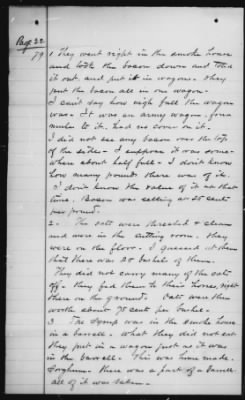 Page 22
79
1 They went right in the smoke house
and took the bacon down and toted
it out and put it in wagon. They
put the bacon all in one wagon.
I can't say how high full the wagon
was. It was an army wagon, four
mules to it. had no cover on it.
I did not see any bacon over the top
of the sides. I suppose it was some-
where about half full. I don't know
how many pounds there was of it.
I don't know the value of it at that
time. Bacon was selling at 25 cents
per pound.
2. The oats were threshed & clean
and were in the sitting room. They
were on the floor. I guessed at them
that there was 25 bushels of them.
They did not carry many of the oats
off. They fed them to their horses right
there on the ground. Oats were then
worth about 75 cents per bushel.
3 The Syrup was in the smoke house
in a barrell. What they did not eat
they put in a wagon just as it was
in the barrell. This was home made.
Sorghum. There was a part of a barrell.
all of it was taken.